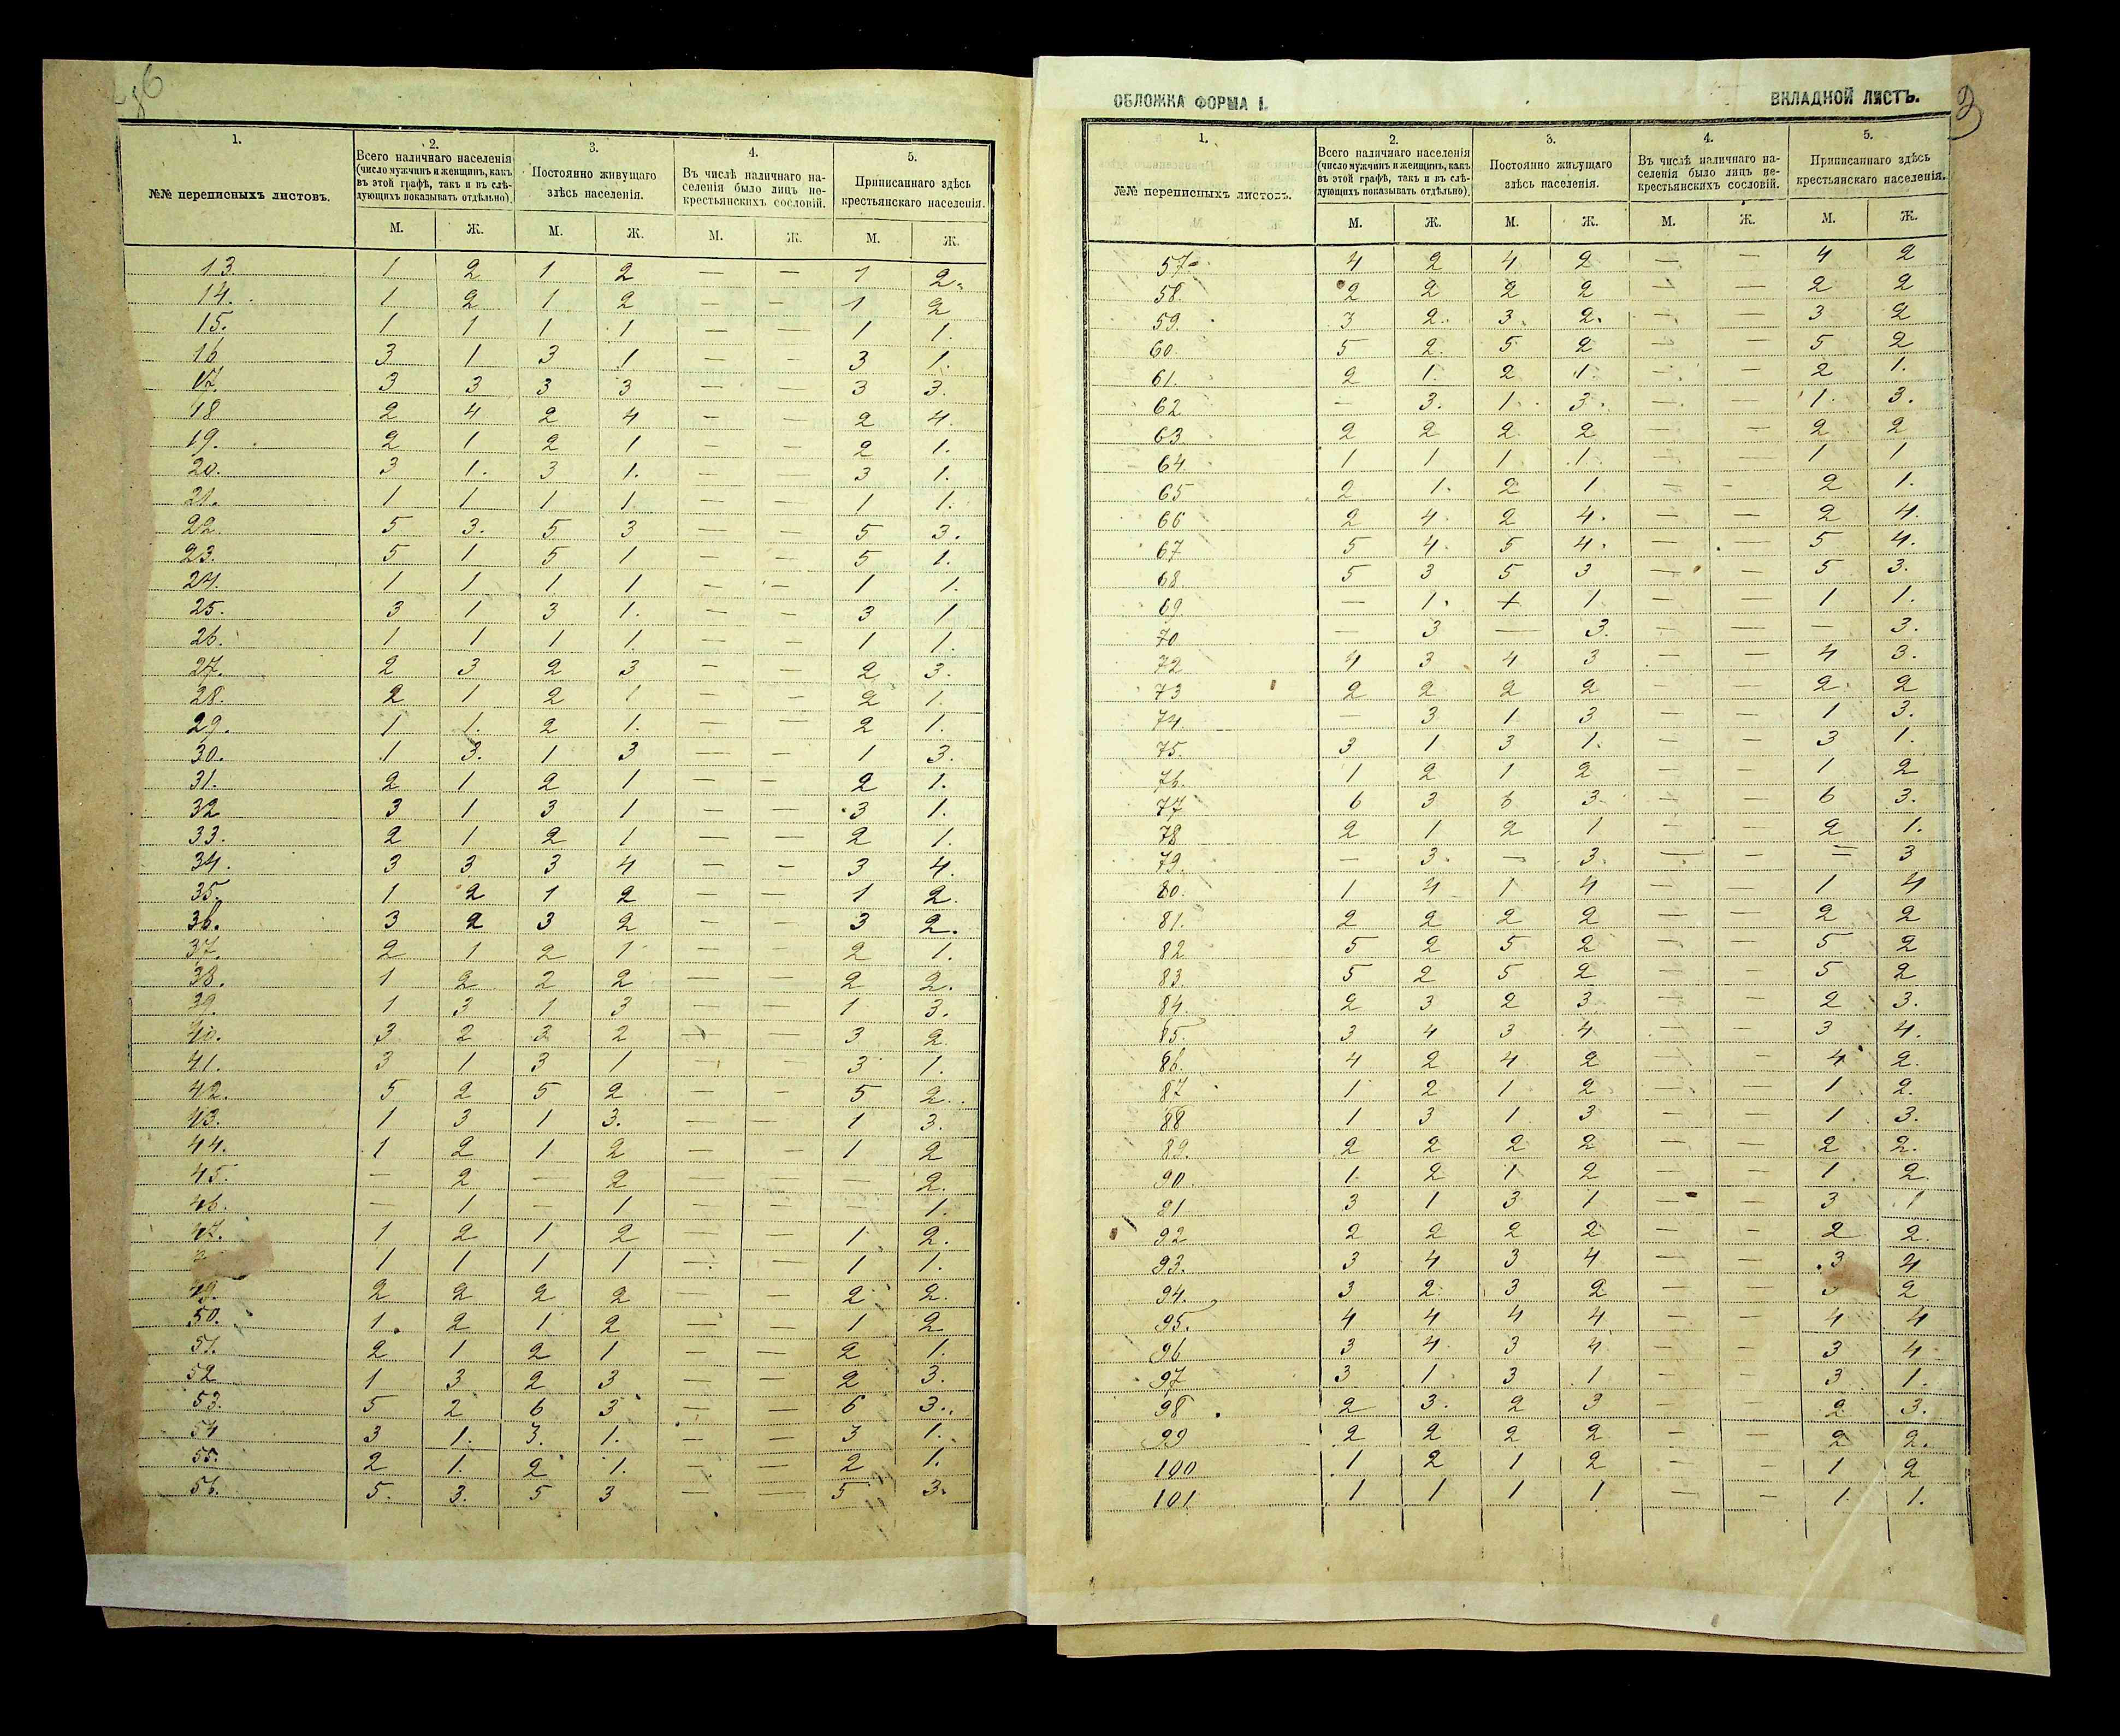 1. 2. 3. 4. 5.
№№ переписныхъ листовъ.
Всего наличнаго населенія
(число мужчинъ и женщинъ, какъ
въ этой графѣ, такъ и въ слѣ-
дующихъ показывать отдѣльно).
Постоянно живущаго
здѣсь населенія.
Въ числѣ наличнаго на-
селенія было лицъ не-
крестьянскихъ сословій.
Приписаннаго здѣсь
крестьянскаго населенія.
М. Ж. М. Ж. М. Ж. М. Ж.
13. 1 2 1 2 — — 1 2.
14. 1 2 1 2 — — 1 2
15. 1 1 1 1 — — 1 1.
16 3 1 3 1 — — 3 1.
17. 3 3 3 3 — — 3 3.
18 2 4 2 4 — — 2 4.
19. 2 1 2 1 — — 2 1.
20. 3 1. 3 1. — — 3 1.
21. 1 1 1 1 — — 1 1.
22. 5 3. 5 3 — — 5 3.
23. 5 1 5 1 — — 5 1.
24. 1 1 1 1 — — 1 1.
25. 3 1 3 1. — — 3 1
26. 1 1 1 1. — — 1 1.
27. 2 3 2 3 — — 2 3.
28. 2 1 2 1 — — 2 1.
29. 1 1. 2 1. — — 2 1.
30. 1 3. 1 3 — — 1 3.
31. 2 1 2 1 — — 2 1.
32 3 1 3 1 — — 3 1.
33. 2 1 2 1 — — 2 1.
34. 3 3 3 4 — — 3 4.
35. 1 2 1 2 — — 1 2.
36. 3 2 3 2 — — 3 2.
37. 2 1 2 1 — — 2 1.
38. 1 2 2 2 — — 2 2.
39. 1 3 1 3 — — 1 3.
40. 3 2 3 2 — — 3 2
41. 3 1 3 1 — — 3 1.
42. 5 2 5 2 — — 5 2.
43. 1 3 1 3. — — 1 3.
44. 1 2 1 2 — — 1 2
45. — 2 — 2 — — — 2.
46. — 1 — 1 — — — 1.
47. 1 2 1 2 — — 1 2.
1 1 1 1 — — 1 1.
49. 2 2 2 2 — — 2 2.
50. 1. 2 1 2 — — 1 2
51. 2 1 2 1 — — 2 1.
52 1 3 2 3 — — 2 3.
53. 5 2 6 3 — — 6 3.
54 3 1. 3. 1. — — 3 1.
55. 2 1. 2 1. — — 2 1.
56. 5. 3. 5 3 — — 5 3.
ОБЛОЖКА ФОРМА I. ВКЛАДНОЙ ЛИСТЪ.
1. 2. 3. 4. 5.
№№ переписныхъ листовъ.
Всего наличнаго населенія
(число мужчинъ и женщинъ, какъ
въ этой графѣ, такъ и въ слѣ-
дующихъ показывать отдѣльно).
Постоянно живущаго
здѣсь населенія.
Въ числѣ наличнаго на-
селенія было лицъ не-
крестьянскихъ сословій.
Приписаннаго здѣсь
крестьянскаго населенія.
М. Ж. М. Ж. М. Ж. М. Ж.
57 4 2 4 2 — — 4 2
58. 2 2 2 2 — — 2 2
59. 3 2. 3 2. — — 3 2
60. 5 2. 5 2 — — 5 2
61. 2 1. 2 1. — — 2 1.
62 — 3. 1. 3. — — 1. 3.
63 2 2 2 2 — — 2 2
64 1 1 1 1. — — 1 1
65 2 1. 2 1 — — 2 1.
66 2 4 2 4. — — 2 4.
67 5 4. 5 4. — — 5 4.
68 5 3 5 3 — — 5 3.
69 — 1. + 1 — — 1 1.
70 — 3 — 3. — — — 3.
72 4 3 4 3 — — 4 3.
73 2 2 2 2 — — 2 2
74 — 3 1 3 — — 1 3.
75. 3 1 3 1. — — 3 1.
76. 1 2 1 2 — — 1 2
77 6 3 6 3 — — 6 3.
78 2 1 2 1 — — 2 1.
79. — 3. — 3. — — — 3
80. 1 4 1 4 — — 1 4
81. 2 2 2 2 — — 2 2
82 5 2 5 2 — — 5 2
83. 5 2 5 2 — — 5 2
84. 2 3 2 3 — — 2 3.
85. 3 4 3 4 — — 3 4.
86. 4 2 4 2 — — 4 2.
87 1 2 1 2 — — 1 2.
88 1 3 1 3 — — 1 3.
89. 2 2 2 2 — — 2 2.
90. 1. 2 1 2 — — 1. 2.
91 3 1 3 1 — — 3 1
92 2 2 2 2 — — 2 2.
93. 3 4 3 4 — — 3 4
94. 3 2. 3 2 — — 3 2
95. 4 4 4 4 — — 4 4
96 3 4 3 4 — — 3 4
97 3 1 3 1 — — 3 1.
98. 2 3. 2 3 — — 2. 3.
99 2 2 2 2 — — 2 2.
100 1 2 1 2 — — 1 2
101 1 1 1 1 — — 1. 1.